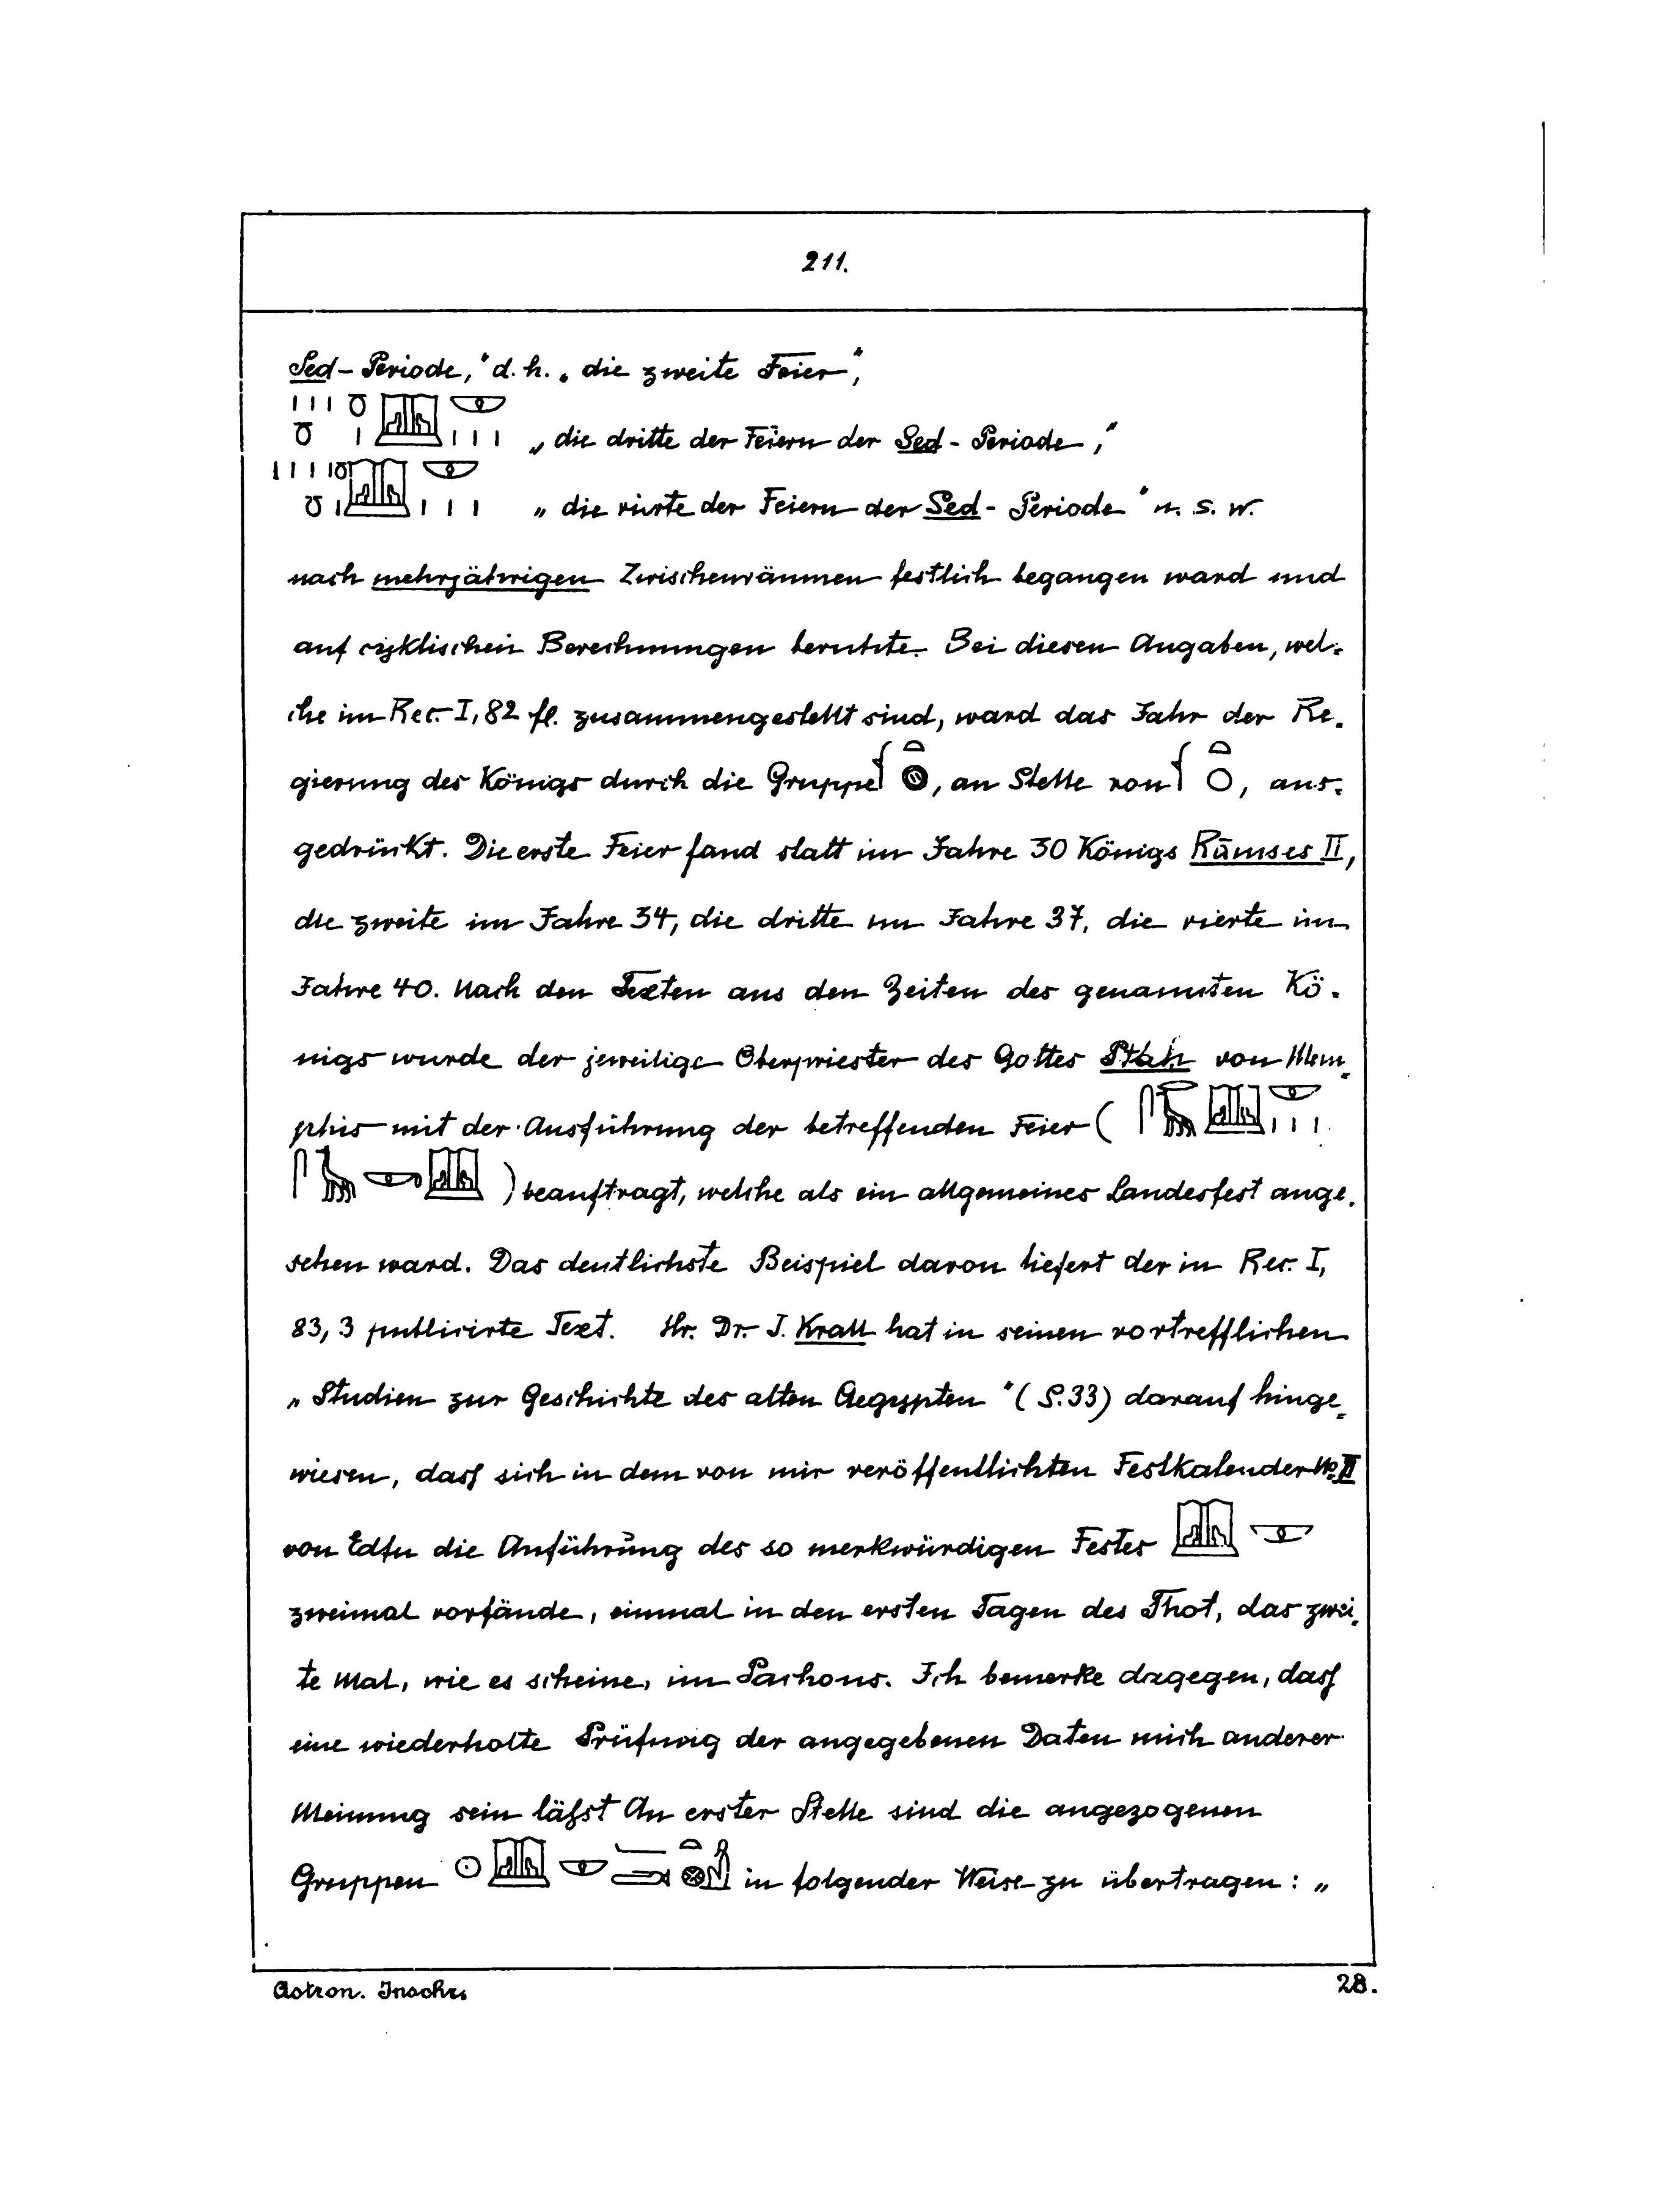 211.
Sed-Periode," d. h. „die zweite Feier",
„die dritte der Feiern der Sed-Periode,"
„die vierte der Feiern der Sed-Periode" u. s. w.
nach mehrjährigen Zwischenräumen festlich begangen ward und
auf cyklischen Berechnungen beruhte. Bei diesen Angaben, wel-
che im Rec. I, 82 fl. zusammengestellt sind, ward das Jahr der Re-
gierung des Königs durch die Gruppe , an Stelle von , aus-
gedrückt. Die erste Feier fand statt im Jahre 30 Königs Rāmses II,
die zweite im Jahre 34, die dritte im Jahre 37, die vierte im
Jahre 40. Nach den Texten aus den Zeiten des genannten Kö-
nigs wurde der jeweilige Oberpriester des Gottes Ptah von Mem-
phis mit der Ausführung der betreffenden Feier (
) beauftragt, welche als ein allgemeines Landesfest ange-
sehen ward. Das deutlichste Beispiel davon liefert der in Rec. I,
83, 3 publicirte Text. Hr. Dr. J. Krall hat in seinen vortrefflichen
„Studien zur Geschichte des alten Aegypten" (S. 33) darauf hinge-
wiesen, dass sich in dem von mir veröffentlichten Festkalender No II
von Edfu die Anführung des so merkwürdigen Festes
zweimal vorfände, einmal in den ersten Tagen des Thot, das zwei-
te Mal, wie es scheine, im Pachons. Ich bemerke dagegen, dass
eine wiederholte Prüfung der angegebenen Daten mich anderer
Meinung sein lässt An erster Stelle sind die angezogenen
Gruppen in folgender Weise zu übertragen: „
Astron. Inschr. 28.